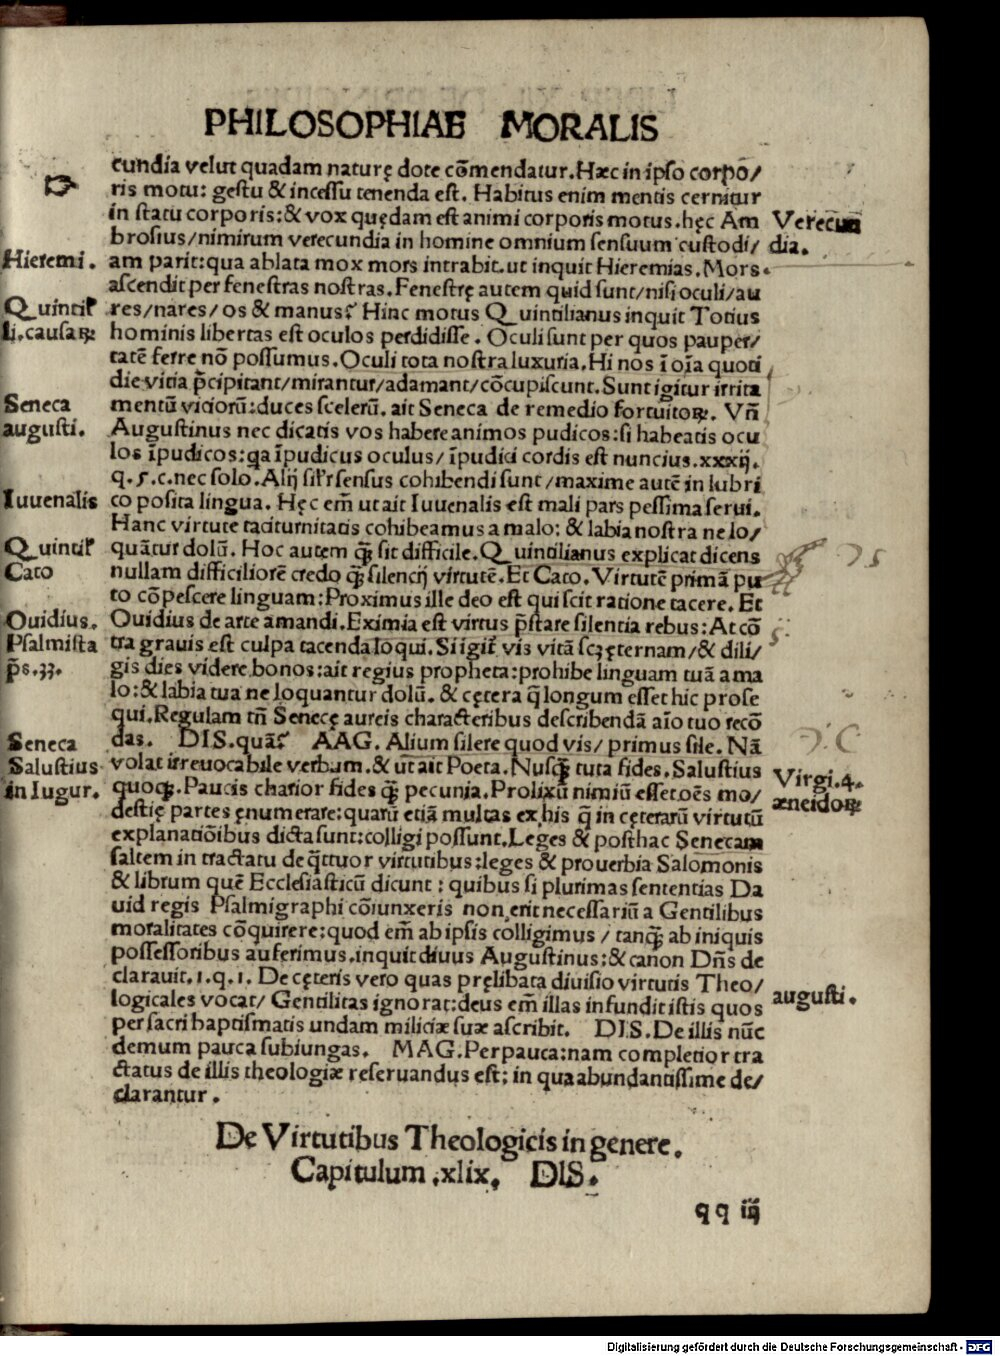 PHILOSOPHIAE MORALIS
cundia velut quadam naturę dote cōmendatur. Hæc in ipso corpo/
ris motu: gestu & incessu tenenda est. Habitus enim mentis cernitur
in statu corporis: & vox quędam est animi corporis motus. hęc Am
brosius/nimirum verecundia in homine omnium sensuum custodi/
am parit: qua ablata mox mors intrabit. ut inquit Hieremias. Mors
ascendit per fenestras nostras. Fenestrę autem quid sunt/nisi oculi/au
res/nares/os & manus? Hinc motus Quintilianus inquit Totius
hominis libertas est oculos perdidisse. Oculi sunt per quos pauper/
tatē ferre nō possumus. Oculi tota nostra luxuria. Hi nos ī oīa quoti
die vitia p̄cipitant/mirantur/adamant/cōcupiscunt. Sunt igitur irrita
mentū vicioru̅: duces scelerū. ait Seneca de remedio fortuitoꝝ. Vn̄
Augustinus nec dicatis vos habere animos pudicos: si habeatis ocu
los īpudicos: qa īpudicus oculus/īpudici cordis est nuncius. xxxij.
q. 5. c. nec solo. Alij sil'r sensus cohibendi sunt/maxime autē in lubri
co posita lingua. Hęc em̄ ut ait Iuuenalis est mali pars pessima serui.
Hanc virtute taciturnitatis cohibeamus a malo: & labia nostra ne lo/
quātur dolū. Hoc autem qȝ̄ sit difficile. Quintilianus explicat dicens
nullam difficiliorē credo qȝ̄ silencij virtutē. Et Cato. Virtutē primā pu
to cōpescere linguam: Proximus ille deo est qui scit ratione tacere. Et
Ouidius de arte amandi. Eximia est virtus p̄stare silentia rebus: At cō
tra grauis est culpa tacenda loqui. Si igit̄ vis vitā scȝ ęternam/& dili/
gis dies videre bonos: ait regius propheta: prohibe linguam tuā a ma
lo: & labia tua ne loquantur dolū. & cętera q̄ longum esset hic prose
qui. Regulam tn̄ Senecę aureis characteribus describendā aīo tuo recō
das. DIS. quā? AAG. Alium silere quod vis/primus sile. Nā
volat irreuocabile verbum. & ut ait Poeta. Nusqȝ̄ tuta fides. Salustius
quoqȝ. Paucis charior fides qȝ̄ pecunia. Prolixū nimiū esset oēs mo/
destię partes enumerare: quarū etiā multas ex his q̄ in cęterarū virtutū
explanatiōibus dicta sunt: colligi possunt. Leges & posthac Senecam
saltem in tractatu de q̄ttuor virtutibus: leges & prouerbia Salomonis
& librum quē Ecclesiasticū dicunt: quibus si plurimas sententias Da
uid regis Psalmigraphi cōiunxeris non erit necessariū a Gentilibus
moralitates cōquirere: quod em̄ ab ipsis colligimus/tanqȝ̄ ab iniquis
possessoribus auferimus. inquit diuus Augustinus: & canon Dn̄s de
clarauit. 1. q. 1. De cęteris vero quas pręlibata diuisio virtutis Theo/
logicales vocat/Gentilitas ignorat: deus em̄ illas infundit istis quos
per sacri baptismatis undam miliciæ suæ ascribit. DIS. De illis nūc
demum pauca subiungas. MAG. Perpauca: nam completior tra
ctatus de illis theologiæ reseruandus est: in qua abundantissime de/
clarantur.
De Virtutibus Theologicis in genere.
Capitulum .xlix. DIS.
qq iij
Hieremi.
Quintil'
li. causaꝝ
Seneca
augusti.
Iuuenalis
Quintil'
Cato
Ouidius.
Psalmista
p̄s. 33.
Seneca
Salustius
in Iugur.
Verecun
dia.
Virgi. 4.
æneidoꝝ
augusti.
Digitalisierung gefördert durch die Deutsche Forschungsgemeinschaft - DFG